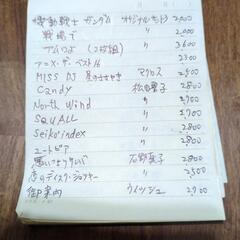 機動戦士 ガンダム オリジナルサントラ 2,000
戦場で 〃 2,000
アムロよ (2枚組) 〃 3,600
アニメ・ザ・ベスト16 2300
MISS DJ マクロス 2,500
Candy 松田聖子 2,800
North Wind 〃 2,700
SQUALL 〃 2,700
Seiko・index 〃 2,800
ユートピア 〃 2,800
石野真子 2,800
恋のディスク・ジョッキー 〃 2,500
御案内 ウイッシュ 2,200